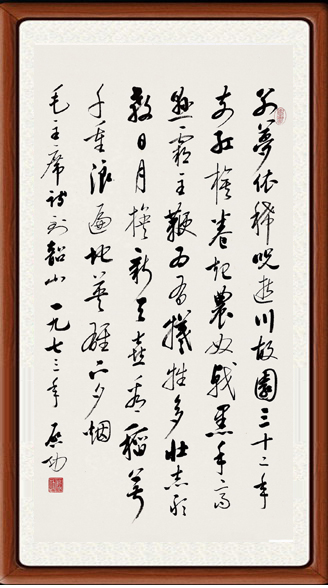 别夢依稀咒逝川故園三十二年
前红旗卷起農奴戟黑手高
懸霸主鞭为有犧牲多壮志敢
教日月换新天喜看稻菽
千重浪遍地英雄下夕烟
毛主席詩到韶山 一九七三年 启功